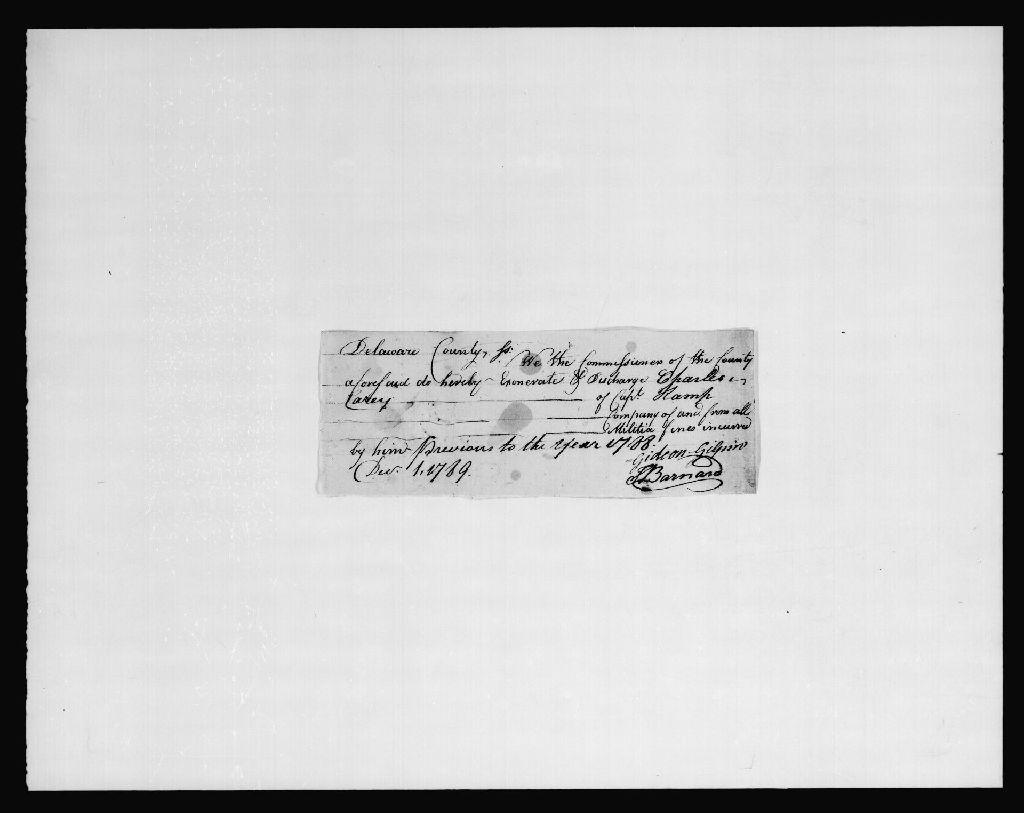 Delaware County, ss. We the Commissioners of the County
aforesaid do hereby Exonerate & Discharge Charles
Carey of Capt.
Company of and from all
Militia fines incurred
by him Previous to the Year 1788.
Gideon Gilpin
Dec. 1. 1789. Barnard